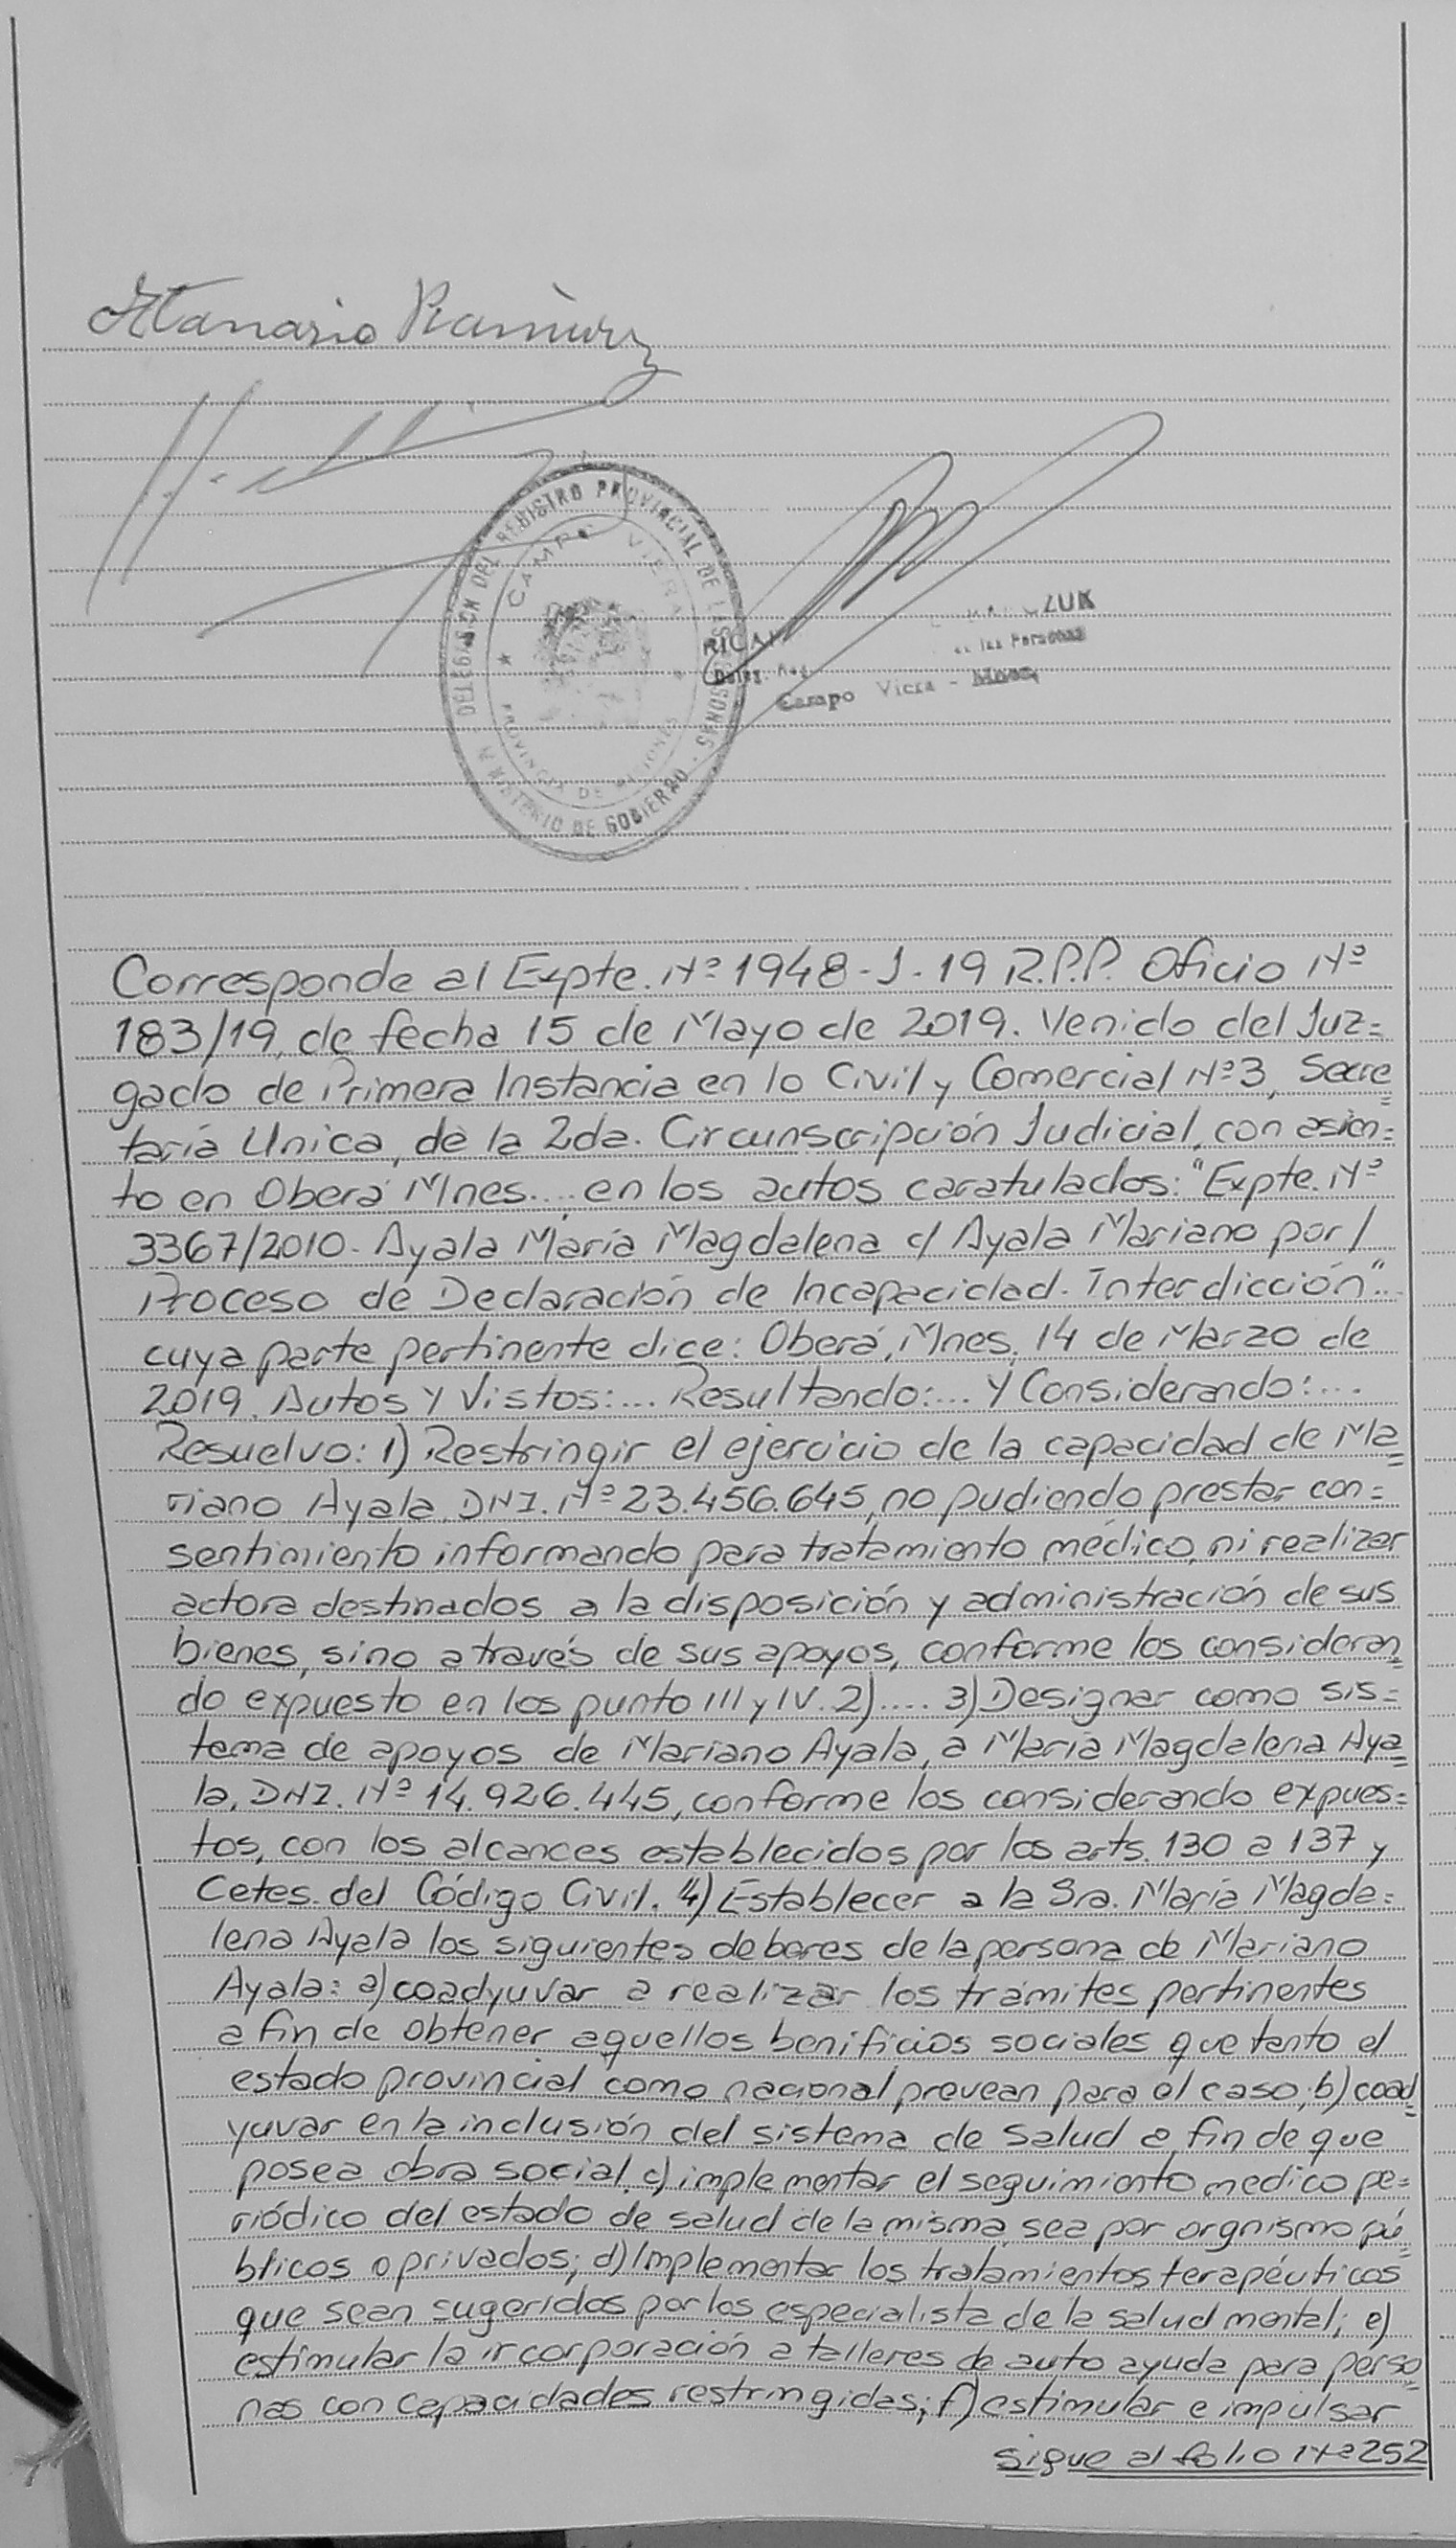 Atanario Ramirez
DELEGACION DEL REGISTRO PROVINCIAL DE LAS PERSONAS - MINISTERIO DE GOBIERNO
CAMPO VIERA
PROVINCIA DE MISIONES
RICAR ZUK
Deleg. de las Personas
Campo Viera - Mnes.
Corresponde al Expte. Nº 1948-J-19 R.P.P. Oficio Nº
183/19, de fecha 15 de Mayo de 2019. Venido del Juz=
gado de Primera Instancia en lo Civil y Comercial Nº3, Secre=
taría Unica, de la 2da. Circunscripción Judicial, con asien=
to en Oberá Mnes.... en los autos caratulados: "Expte. Nº
3367/2010. Ayala María Magdalena c/ Ayala Mariano por/
Proceso de Declaración de Incapacidad. Interdicción"...
cuya parte pertinente dice: Oberá, Mnes, 14 de Marzo de
2019. Autos y Vistos:... Resultando:... y Considerando:...
Resuelvo: 1) Restringir el ejercicio de la capacidad de Ma=
riano Ayala. DNI. Nº 23.456.645, no pudiendo prestar con=
sentimiento informando para tratamiento médico, ni realizar
actora destinados a la disposición y administración de sus
bienes, sino a través de sus apoyos, conforme los consideran
do expuesto en los punto III y IV. 2).... 3) Designar como sis=
tema de apoyos de Mariano Ayala, a María Magdalena Aya=
la, DNI. Nº 14.926.445, conforme los considerando expues=
tos, con los alcances establecidos por los arts. 130 a 137 y
Cetes. del Código Civil. 4) Establecer a la Sra. María Magda=
lena Ayala los siguientes deberes de la persona de Mariano
Ayala: a) coadyuvar a realizar los trámites pertinentes
a fin de obtener aquellos benificios sociales que tanto el
estado provincial como nacional prevean para el caso; b) coad=
yuvar en la inclusión del sistema de Salud a fin de que
posea obra social, c) implementar el seguimiento medico pe=
riódico del estado de salud de la misma, sea por orgnismo pú=
blicos o privados; d) Implementar los tratamientos terapéuticos
que sean sugeridos por los especialista de la salud mental; e)
estimular la incorporación a talleres de auto ayuda para perso=
nas con capacidades restringidas; f) estimular e impulsar
sigue al folio Nº 252